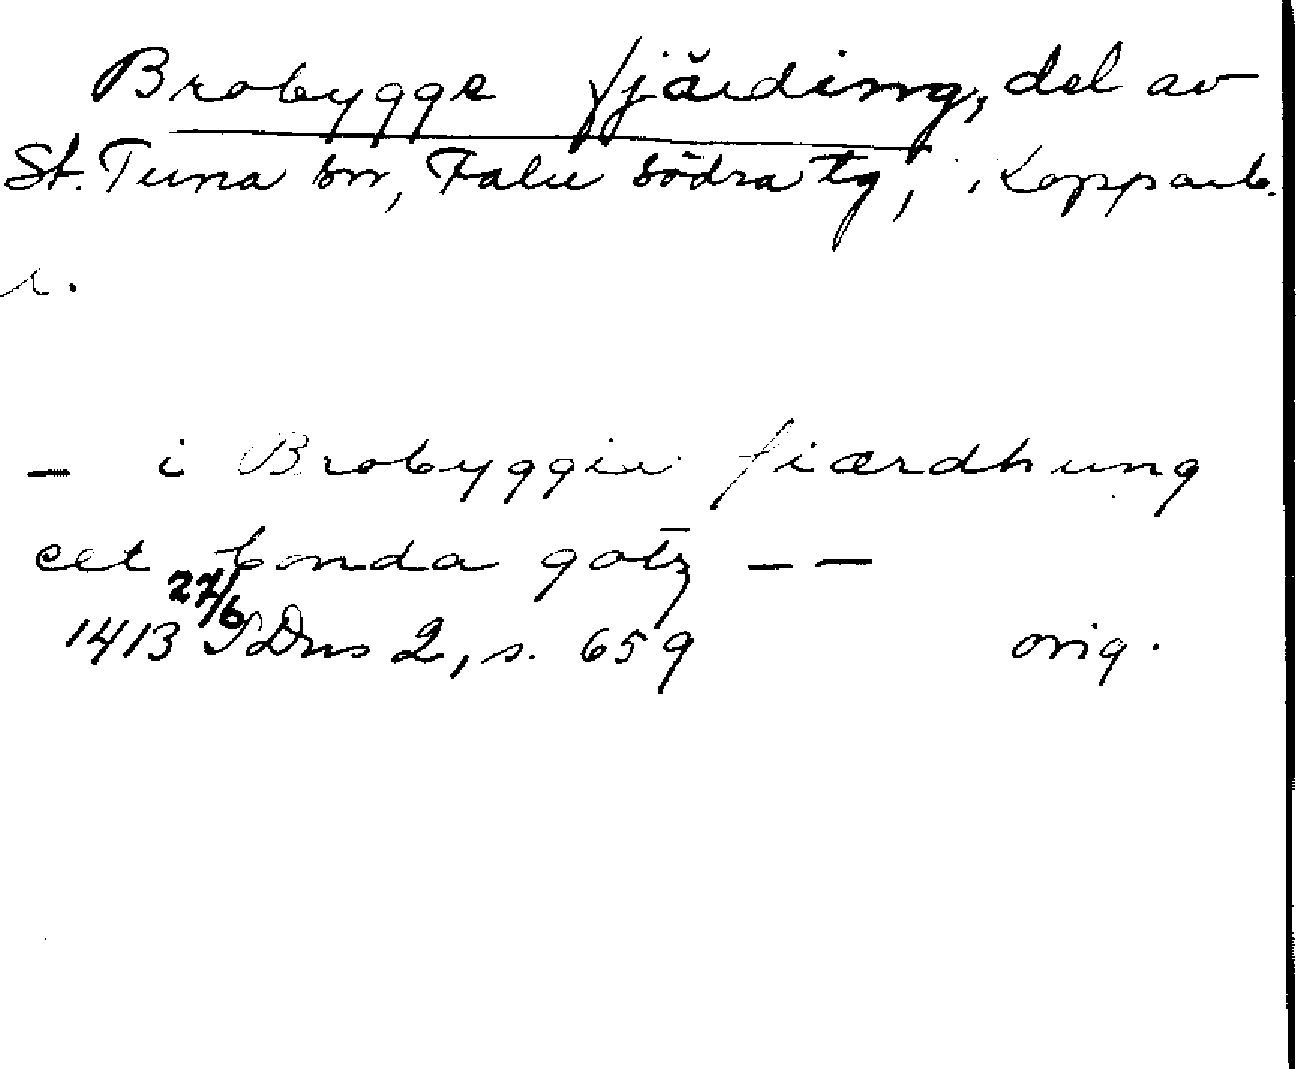 Brobygge fjärding, del av
St. Tuna sn, Falu södra tg, Kopparb.
l.
- i Brobyggia fiærdhung
eet bonda gotz - -
1413 27/6 SDns 2, s. 659 orig.